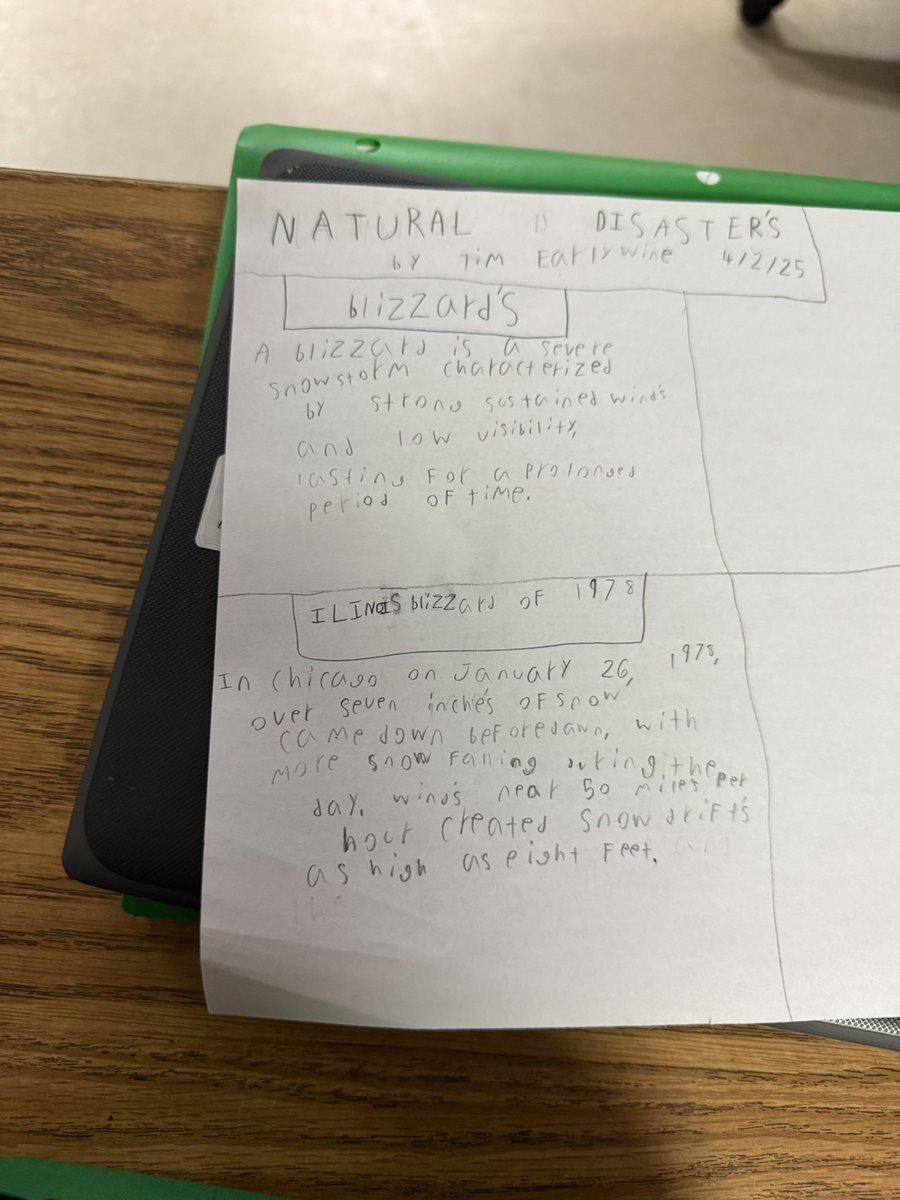 NATURAL DISASTER'S
by Tim Earlywine 4/2/25
blizzard's
A blizzard is a severe
snowstorm characterized
by strong sustained wind's
and low visibility,
lasting for a prolonged
period of time.
ILINOIS blizzard of 1978
In Chicago on January 26, 1978,
over seven inche's of snow
came down before dawn, with
more snow falling during the
day. wind's near 50 mile's per
hour created snow drift's
as high as eight feet.